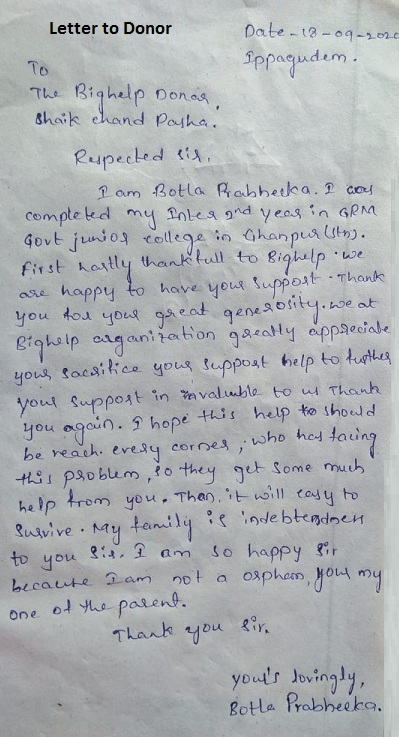 Letter to Donor
Date - 18-09-2020
Ippagudem.
To
The Bighelp Donor,
Shaik chand Pasha.
Respected sir,
I am Botla Prabheeka. I
completed my Inter 2nd year in GPM
Govt junior college in Ghanpur (stn).
First hartly thankfull to Bighelp. we
are happy to have your support. Thank
you for your great generosity. we at
Bighelp organization greatly appreciate
your sacrifice your support help to further
your support in invaluable to us Thank
you again. I hope this help to should
be reach every corner, who has facing
this problem, so they get some much
help from you. Then, it will easy to
survive. My family is indebtendnen
to you Sir. I am so happy Sir
because I am not a orphan, your my
one of the parent.
Thank you Sir.
your's lovingly,
Botla Prabheeka.